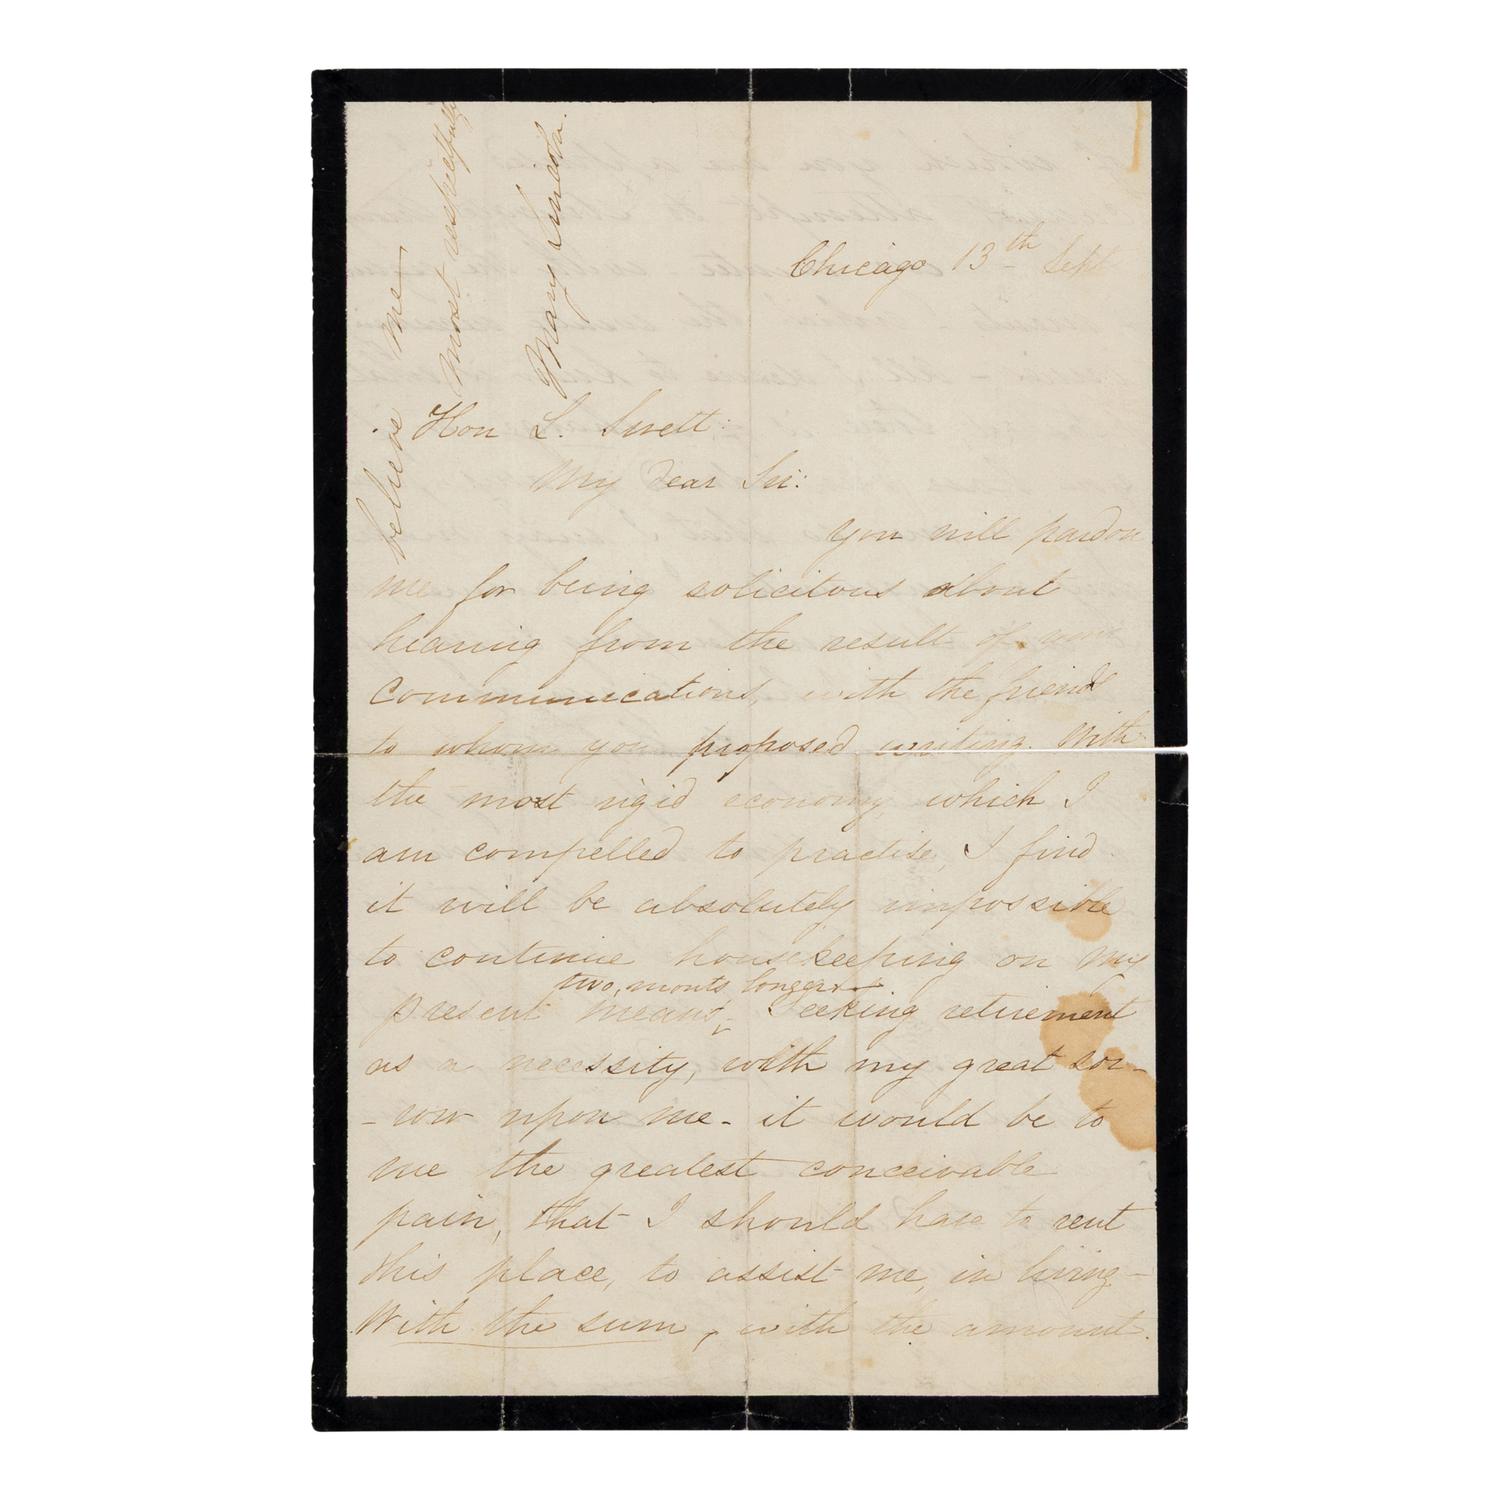 Chicago 13th Sept
Hon L. Swett:
My Dear Sir:
You will pardon
me for being solicitous about
hearing from the result of your
communications, with the friends
to whom you proposed writing. With
the most rigid economy, which I
am compelled to practise, I find
it will be absolutely impossible
to continue housekeeping on my
two, monts longer
present means, Seeking retirement
as a necessity, with my great sor-
-row upon me - it would be to
me the greatest conceivable
pain, that I should have to rent
this place, to assist me, in living -
With the sum, with the amount
believe me
most respectfully
Mary Lincoln.